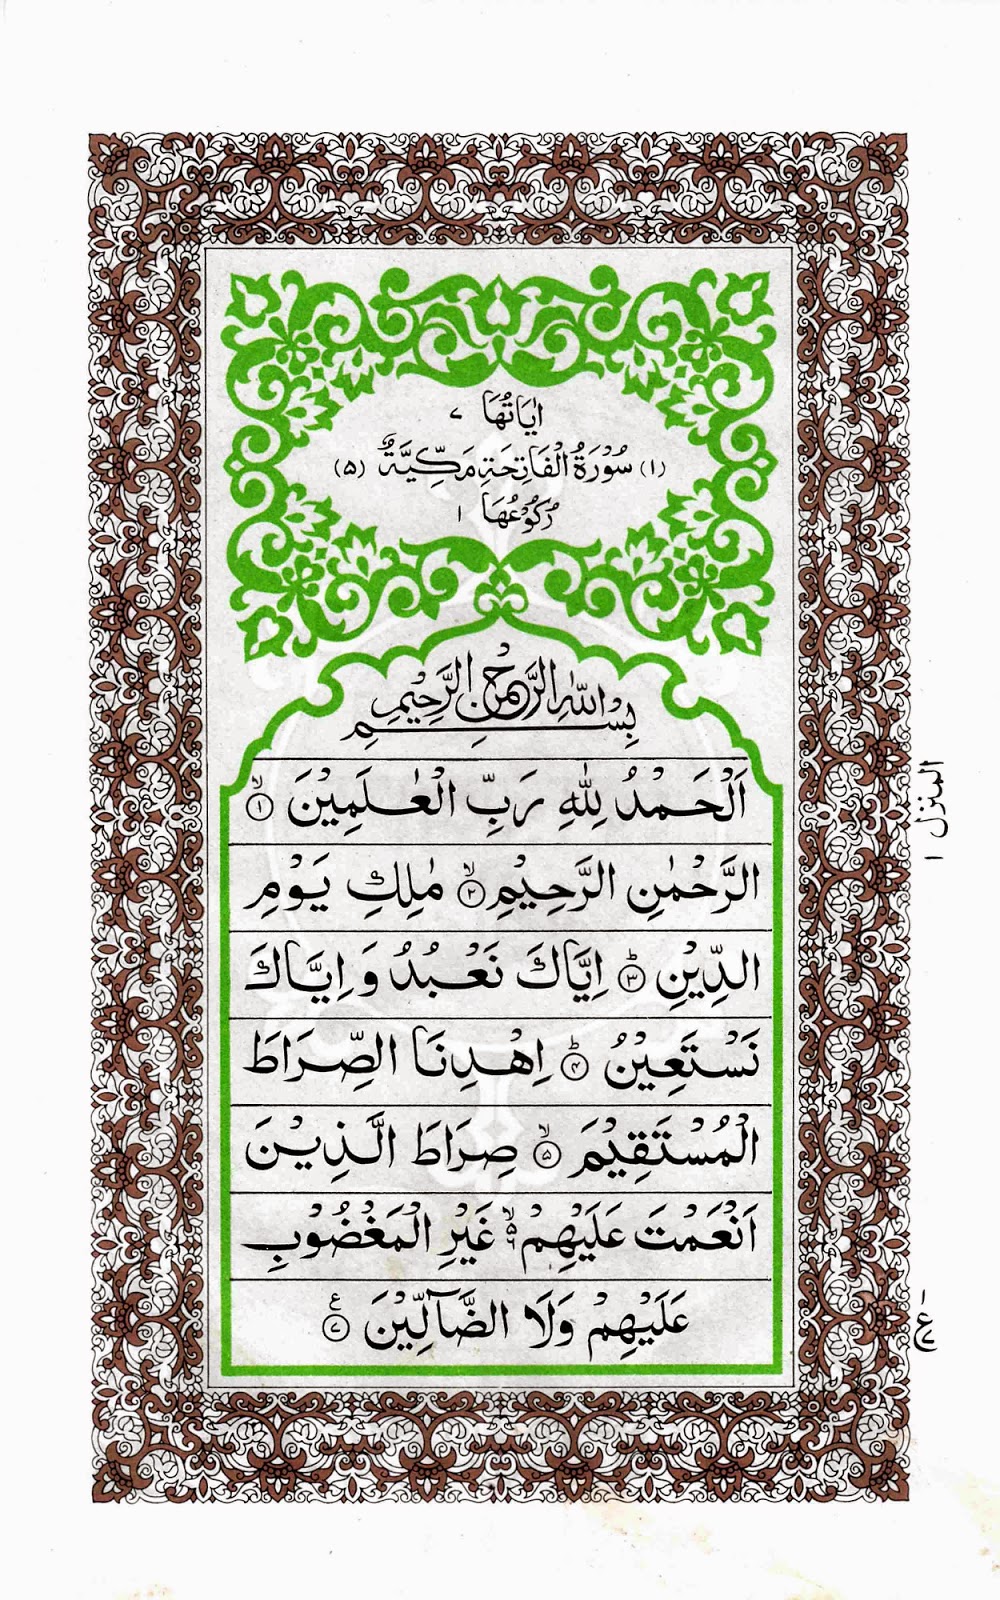 اٰیَاتُهَا ۷
(۱) سُوْرَةُ الْفَاتِحَةِ مَكِّيَّةٌ (۵)
رُكُوْعُهَا ۱
بِسْمِ اللّٰهِ الرَّحْمٰنِ الرَّحِيْمِ
اَلْحَمْدُ لِلّٰهِ رَبِّ الْعٰلَمِيْنَ ۙ‏﴿۱﴾
الرَّحْمٰنِ الرَّحِيْمِ ۙ‏﴿۲﴾ مٰلِكِ يَوْمِ
الدِّيْنِ ؕ‏﴿۳﴾ اِيَّاكَ نَعْبُدُ وَ اِيَّاكَ
نَسْتَعِيْنُ ؕ‏﴿۴﴾ اِهْدِنَا الصِّرَاطَ
الْمُسْتَقِيْمَ ۙ‏﴿۵﴾ صِرَاطَ الَّذِيْنَ
اَنْعَمْتَ عَلَيْهِمْ ۙ۬ ۶ غَيْرِ الْمَغْضُوْبِ
عَلَيْهِمْ وَلَا الضَّآلِّيْنَ ع‏﴿۷﴾
المنزل ۱